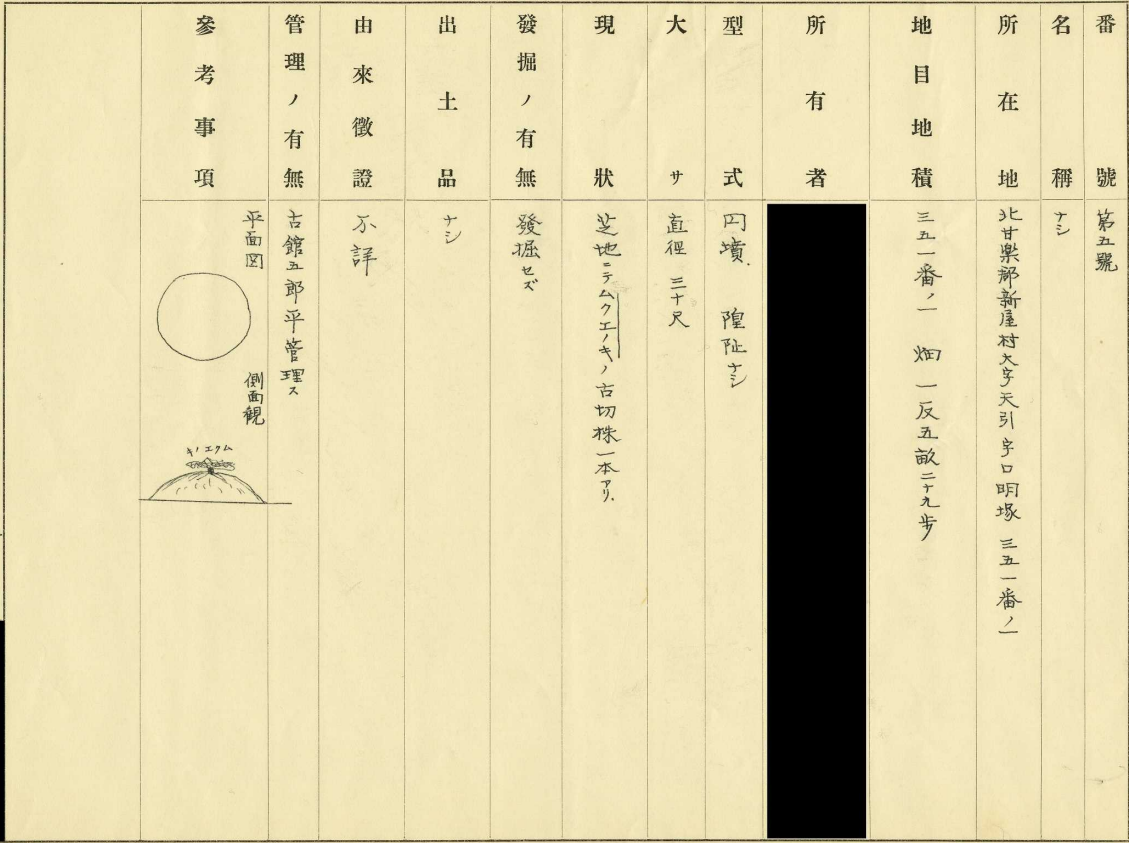 番號 第五號
名稱 ナシ
所在地 北甘楽郡新屋村大字天引字口明塚 三五一番ノ一
地目地積 三五一番ノ一 畑 一反五畝二十九歩
所有者
型式 円墳 隍阯ナシ
大サ 直徑 三十尺
現狀 芝地ニテムクエノキノ古切株一本アリ.
發掘ノ有無 發掘セズ
出土品 ナシ
由來徵證 不詳
管理ノ有無 古館五郎平管理ス
參考事項
平面図
側面観
ムクエノキ